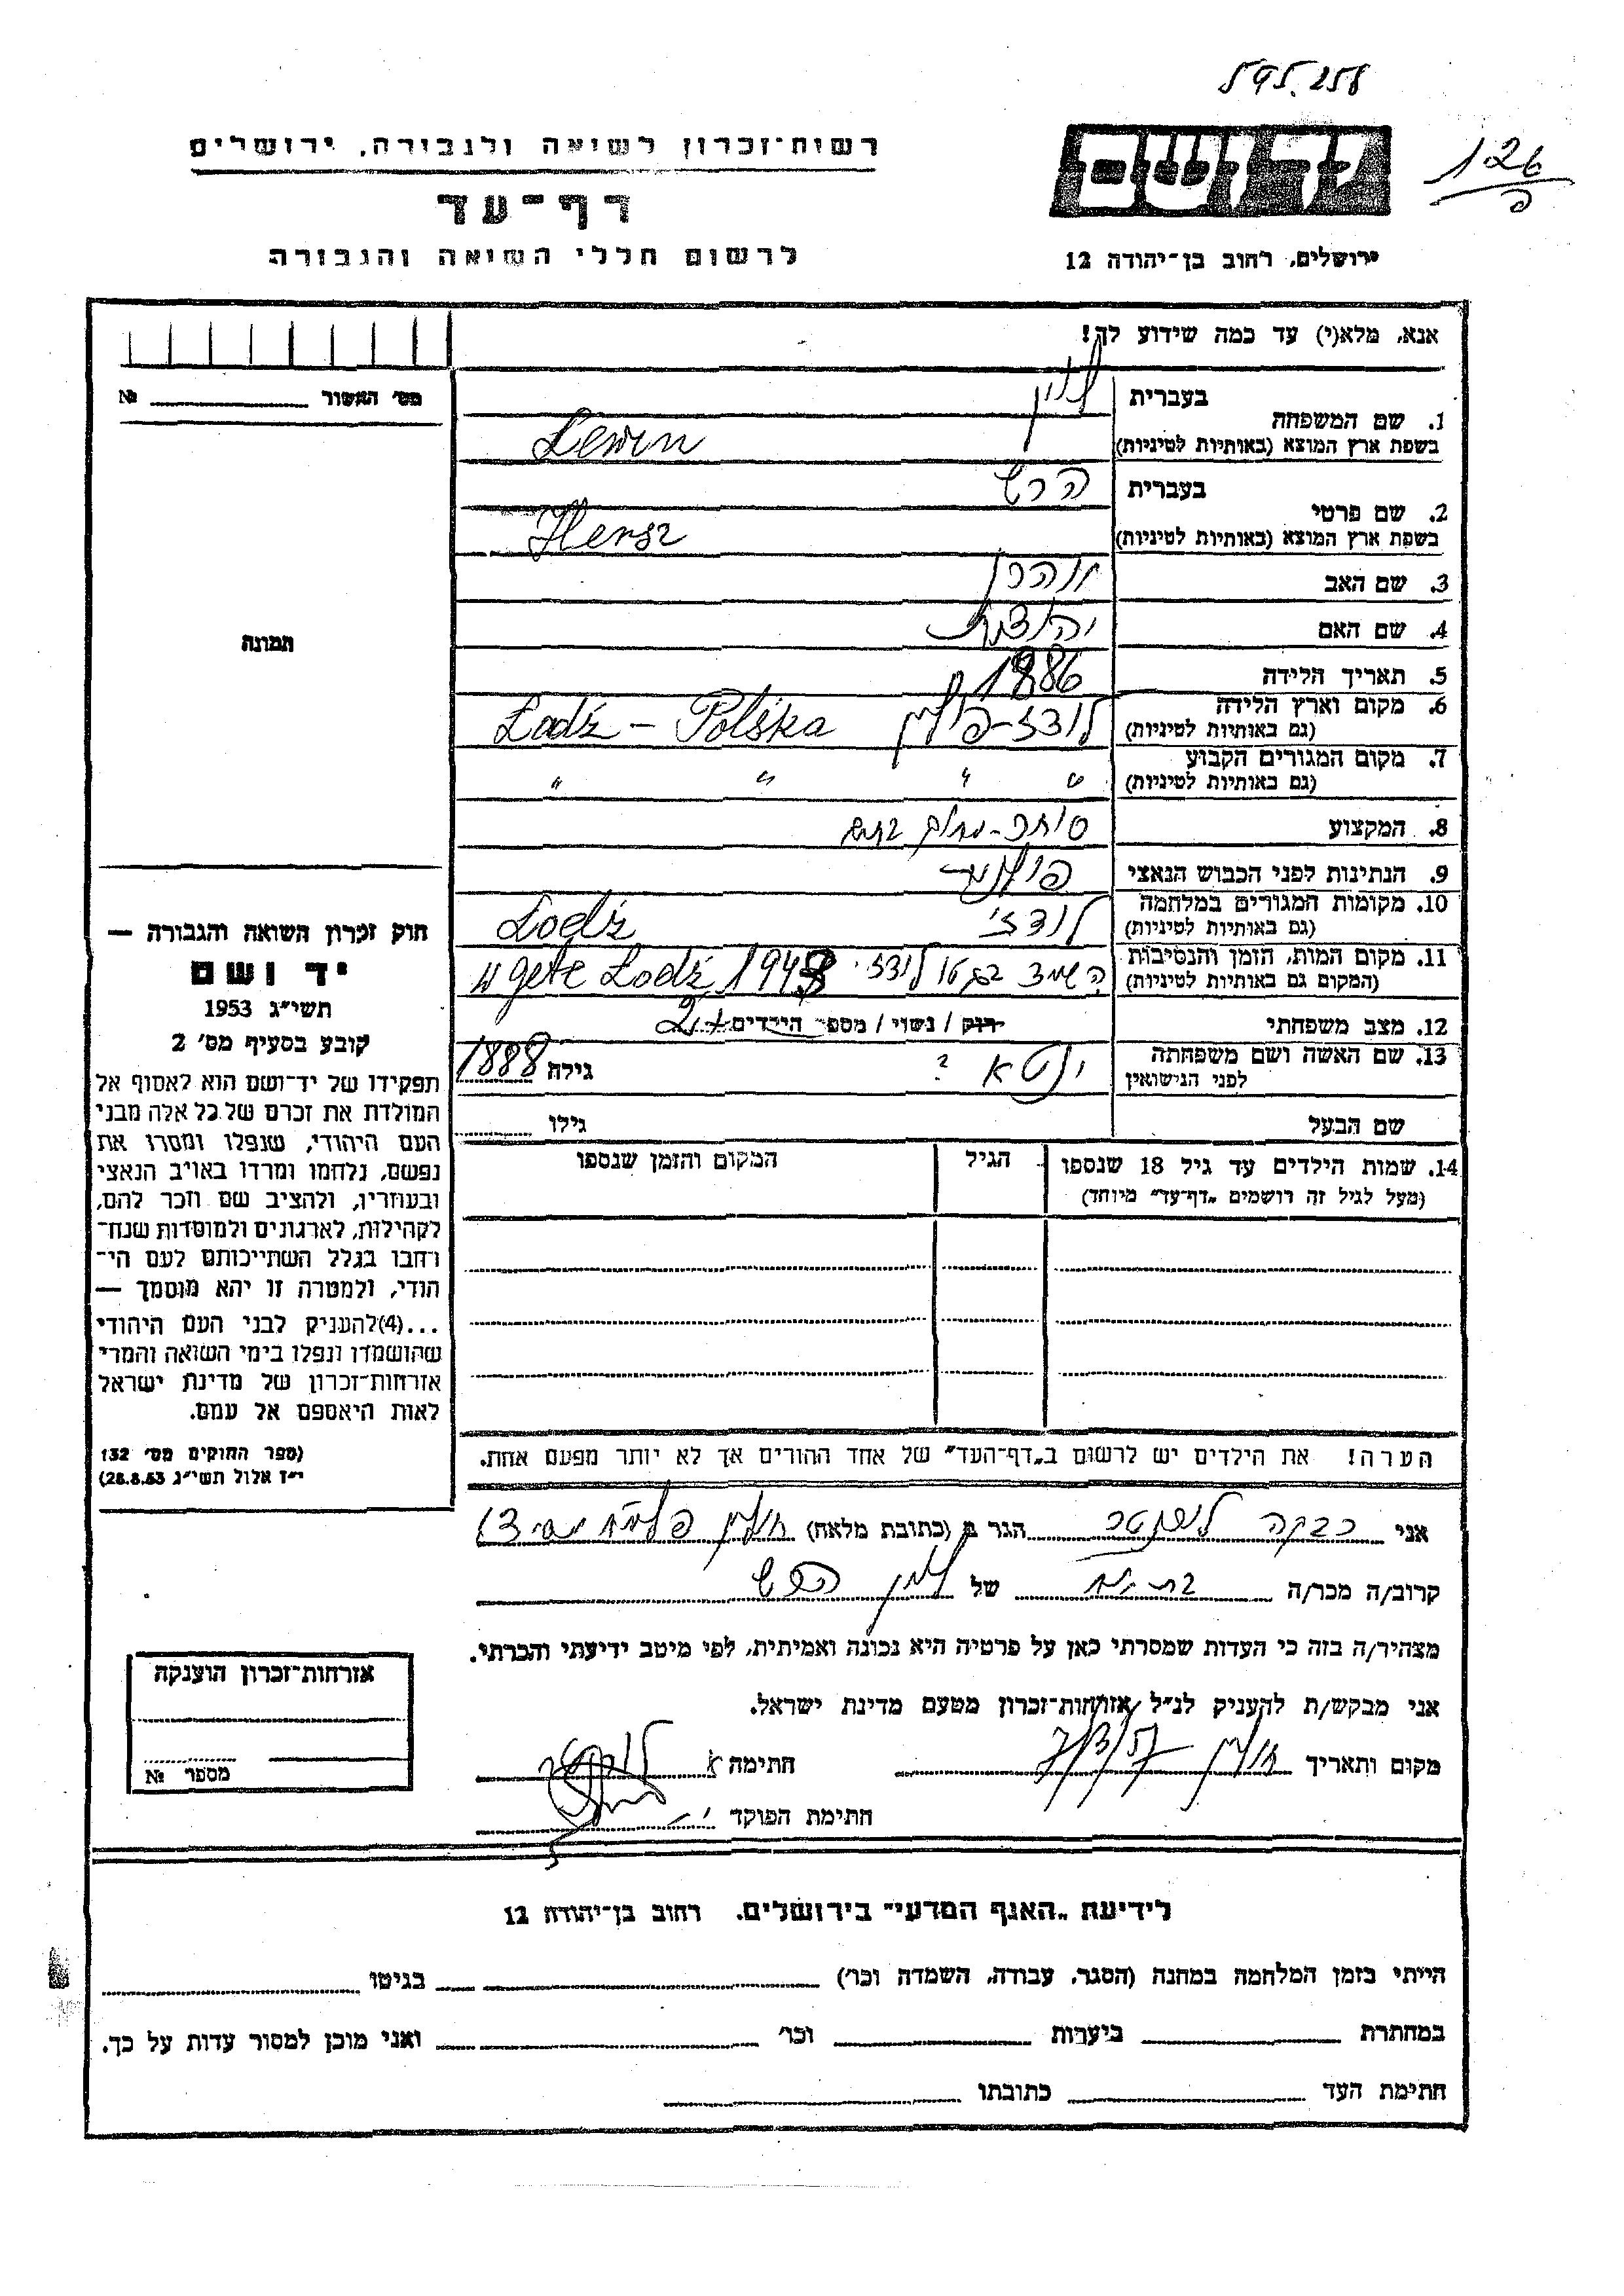 595.258
126
רשות־זכרון לשואה ולגבורה, ירושלים
יד ושם
דף־עד
לרשום חללי השואה והגבורה
ירושלים, רחוב בן־יהודה 12
אנא, מלא(י) עד כמה שידוע לך!
מס׳ האשור № 
1. שם המשפחה בעברית לוין
בשפת ארץ המוצא (באותיות לטיניות) Lewin
2. שם פרטי בעברית הרש
בשפת ארץ המוצא (באותיות לטיניות) Hersz
3. שם האב
4. שם האם יהודית
תמונה
5. תאריך הלידה 1886
6. מקום וארץ הלידה (גם באותיות לטיניות) לודז-פולין Lodź - Polska
7. מקום המגורים הקבוע (גם באותיות לטיניות) " " " "
8. המקצוע סוחר
9. הנתינות לפני הכבוש הנאצי פולנית
10. מקומות המגורים במלחמה (גם באותיות לטיניות) לודז׳ Lodź
11. מקום המות, הזמן והנסיבות (המקום גם באותיות לטיניות) בגטו לודז׳ 1943 w gete Lodź
12. מצב משפחתי רווק / נשוי / מספר הילדים 2
13. שם האשה ושם משפחתה לפני הנישואין ינטא ? גילה 1888
שם הבעל גילו
14. שמות הילדים עד גיל 18 שנספו הגיל המקום והזמן שנספו
(מעל לגיל זה רושמים „דף־עד״ מיוחד)
חוק זכרון השואה והגבורה —
יד ושם
תשי״ג 1953
קובע בסעיף מס׳ 2
תפקידו של יד־ושם הוא לאסוף אל
המולדת את זכרם של כל אלה מבני
העם היהודי, שנפלו ומסרו את
נפשם, נלחמו ומרדו באויב הנאצי
ובעוזריו, ולהציב שם וזכר להם,
לקהילות, לארגונים ולמוסדות שנח־
רבו בגלל השתייכותם לעם הי־
הודי, ולמטרה זו יהא מוסמך —
...(4) להעניק לבני העם היהודי
שהושמדו ונפלו בימי השואה והמרי
אזרחות־זכרון של מדינת ישראל
לאות היאספם אל עמם.
(ספר החוקים מס׳ 132
י״ז אלול תשי״ג 28.8.53)
הערה! את הילדים יש לרשום ב„דף־העד״ של אחד ההורים אך לא יותר מפעם אחת.
אני רבקה הגר ב (כתובת מלאה) חולון
קרוב/ה מכר/ה של לוין הרש
מצהיר/ה בזה כי העדות שמסרתי כאן על פרטיה היא נכונה ואמיתית, לפי מיטב ידיעתי והכרתי.
אני מבקש/ת להעניק לנ״ל אזרחות־זכרון מטעם מדינת ישראל.
מקום ותאריך חולון חתימה
חתימת הפוקד
אזרחות־זכרון הוענקה
מספר №
לידיעת „האגף המדעי״ בירושלים. רחוב בן־יהודה 12
הייתי בזמן המלחמה במחנה (הסגר, עבודה, השמדה וכו׳) בגיטו
במחתרת ביערות וכו׳ ואני מוכן למסור עדות על כך.
חתימת העד כתובתו